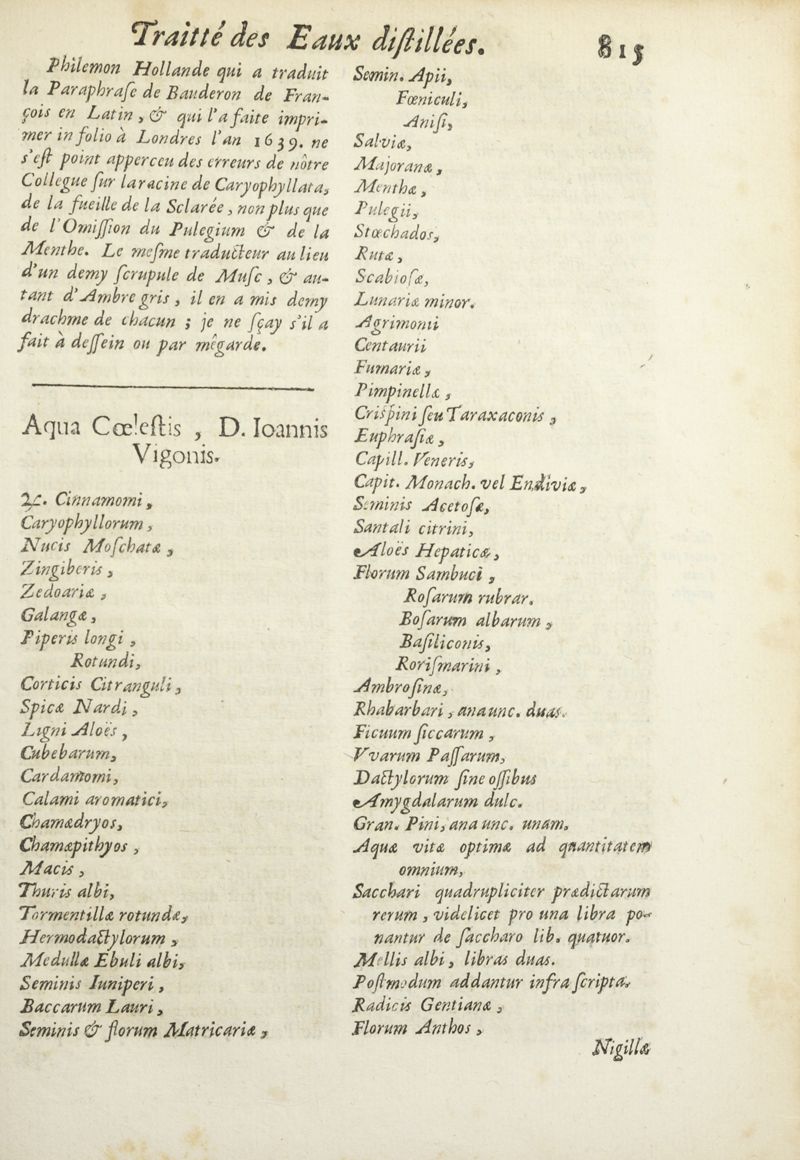 Traitté des Eaux distillées. 815
Philemon Hollande qui a traduit
la Paraphrase de Bauderon de Fran-
çois en Latin, & qui l'a faite impri-
mer in folio à Londres l'an 1639. ne
s'est point apperceu des erreurs de nôtre
Collegue sur la racine de Caryophyllata,
de la fueille de la Sclarée, non plus que
de l'Omission du Pulegium & de la
Menthe. Le mesme traducteur au lieu
d'un demy scrupule de Musc, & au-
tant d'Ambre gris, il en a mis demy
drachme de chacun ; je ne sçay s'il a
fait à dessein ou par mégarde.
Aqua Cœlestis, D. Ioannis
Vigonis.
♃. Cinnamomi,
Caryophyllorum,
Nucis Moschatæ,
Zingiberis,
Zedoariæ,
Galangæ,
Piperis longi,
Rotundi,
Corticis Citranguli,
Spicæ Nardi,
Ligni Aloës,
Cubebarum,
Cardamomi,
Calami aromatici,
Chamædryos,
Chamæpithyos,
Macis,
Thuris albi,
Tormentillæ rotundæ,
Hermodactylorum,
Medullæ Ebuli albi,
Seminis Iuniperi,
Baccarum Lauri,
Seminis & florum Matricariæ,
Semin. Apii,
Fœniculi,
Anisi,
Salviæ,
Majoranæ,
Menthæ,
Pulegii,
Stœchados,
Rutæ,
Scabiosæ,
Lunariæ minor.
Agrimonii
Centaurii
Fumariæ,
Pimpinellæ,
Crispini seu Taraxaconis,
Euphrasiæ,
Capill. Veneris,
Capit. Monach. vel Endiviæ,
Seminis Acetosæ,
Santali citrini,
Aloës Hepaticæ,
Florum Sambuci,
Rosarum rubrar.
Bosarum albarum,
Basiliconis,
Rorismarini,
Ambrosinæ,
Rhabarbari, ana unc. duas.
Ficuum siccarum,
Vvarum Passarum,
Dactylorum sine ossibus
Amygdalarum dulc.
Gran. Pini, ana unc. unam.
Aquæ vitæ optimæ ad quantitatem
omnium,
Sacchari quadrupliciter prædictarum
rerum, videlicet pro una libra po-
nantur de saccharo lib. quatuor.
Mellis albi, libras duas.
Postmodum addantur infra scripta.
Radicis Gentianæ,
Florum Anthos,
Nigillæ